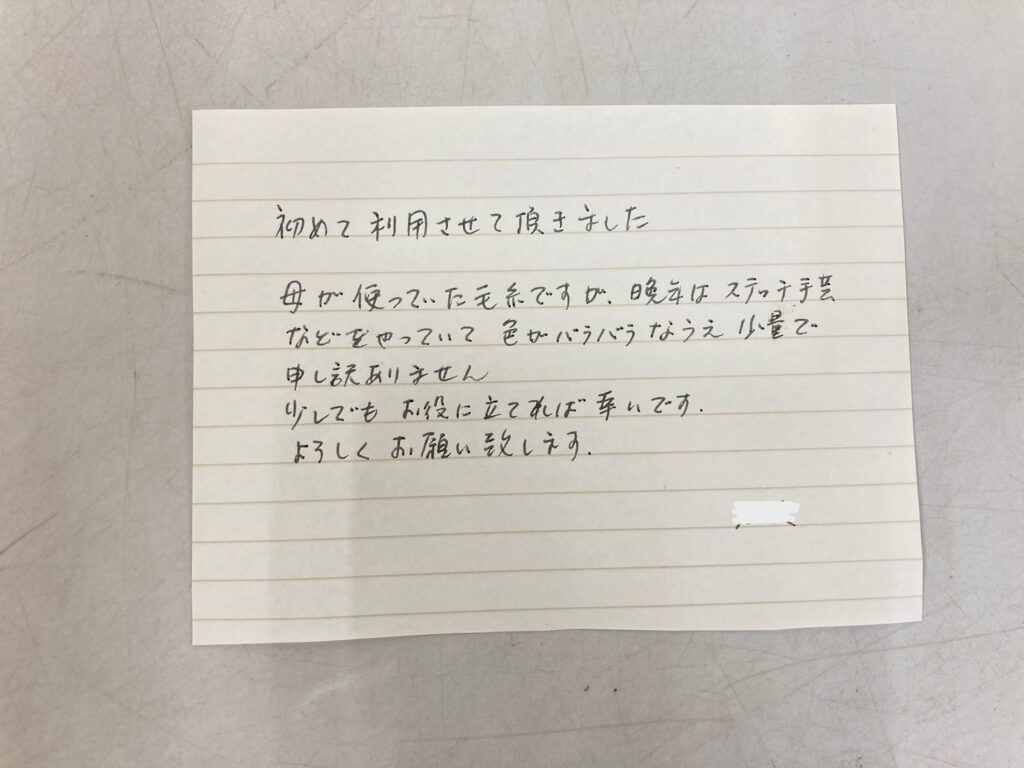 初めて利用させて頂きました
母が使っていた毛糸ですが、晩年はステッチ手芸
などをやっていて 色がバラバラなうえ 少量で
申し訳ありません
少しでも お役に立てれば幸いです.
よろしくお願い致します.